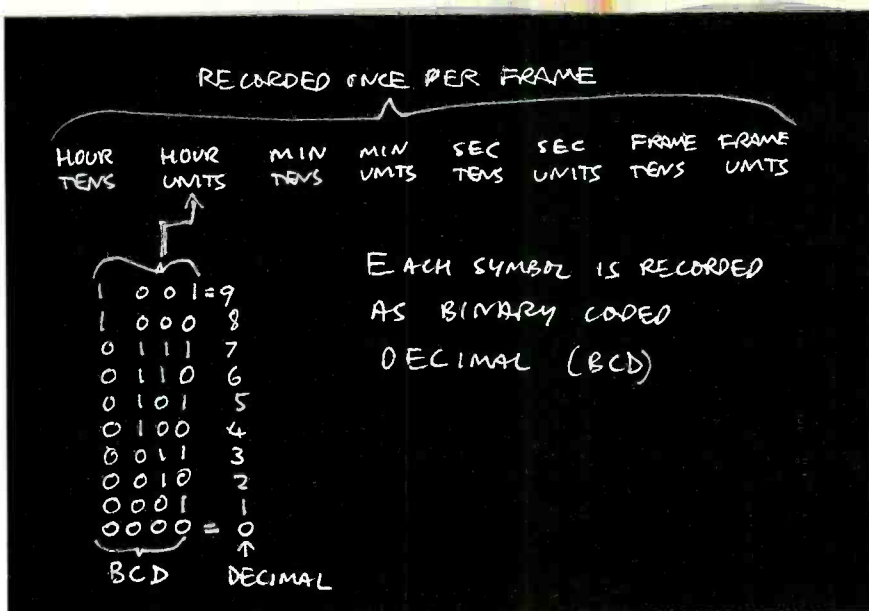 RECORDED ONCE PER FRAME
HOUR TENS HOUR UNITS MIN TENS MIN UNITS SEC TENS SEC UNITS FRAME TENS FRAME UNITS
1 0 0 1 = 9
1 0 0 0 8
0 1 1 1 7
0 1 1 0 6
0 1 0 1 5
0 1 0 0 4
0 0 1 1 3
0 0 1 0 2
0 0 0 1 1
0 0 0 0 = 0
BCD DECIMAL
EACH SYMBOL IS RECORDED
AS BINARY CODED
DECIMAL (BCD)